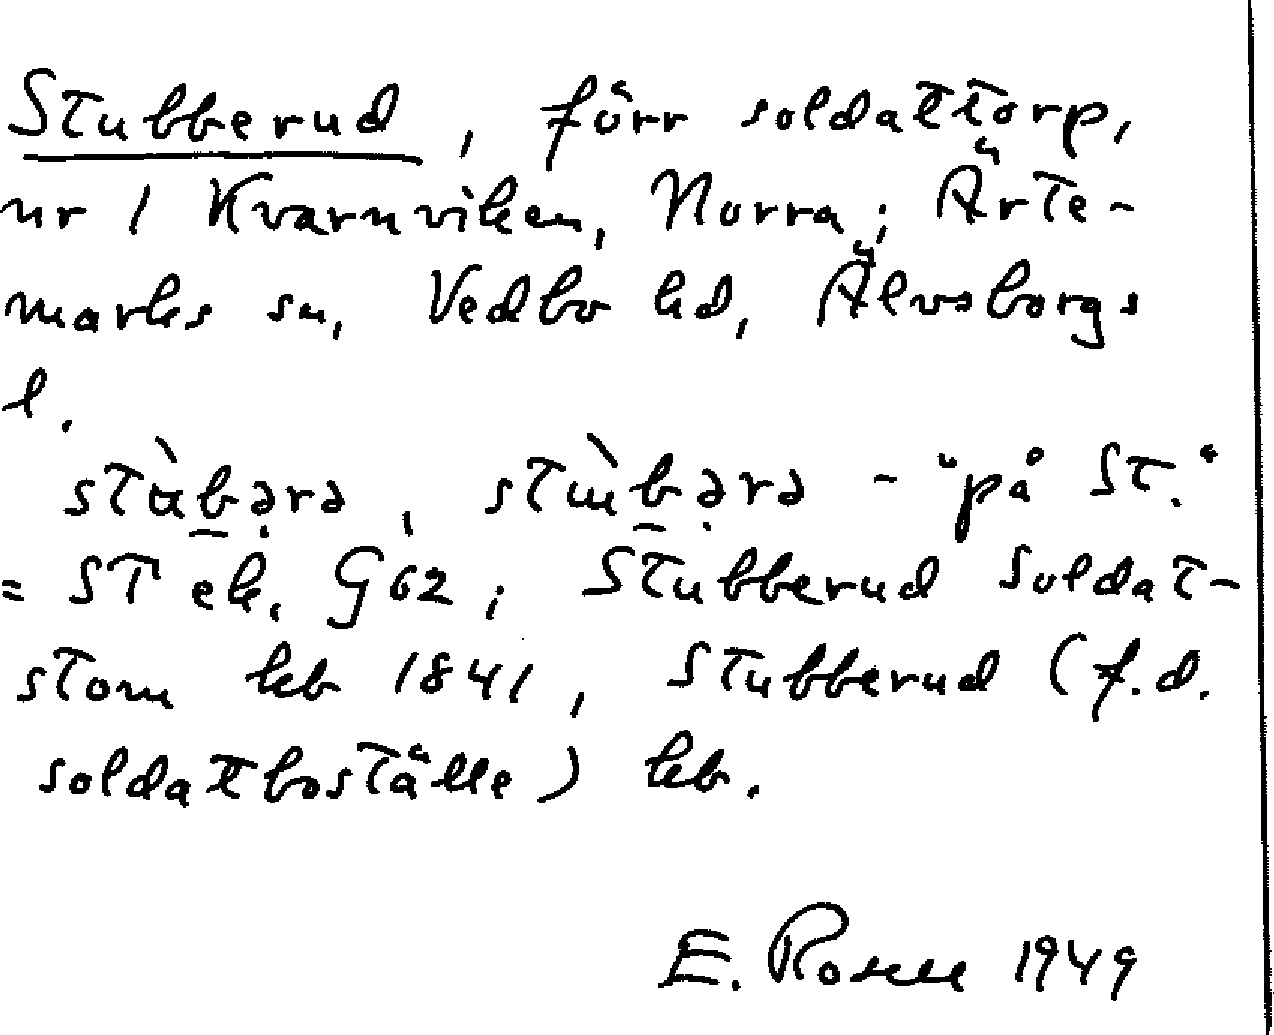 Stubberud, förr soldattorp,
nr 1 Kvarnviken, Norra; Ärte-
marks sn, Vedbo hd, Älvsborgs
l.
stùb̲ə̣rə, stùb̲ə̣rə - "på St."
= St ek. G62; Stubberud Soldat-
stom kb 1841, Stubberud (f.d.
soldatboställe) kb.
E. Rosell 1949